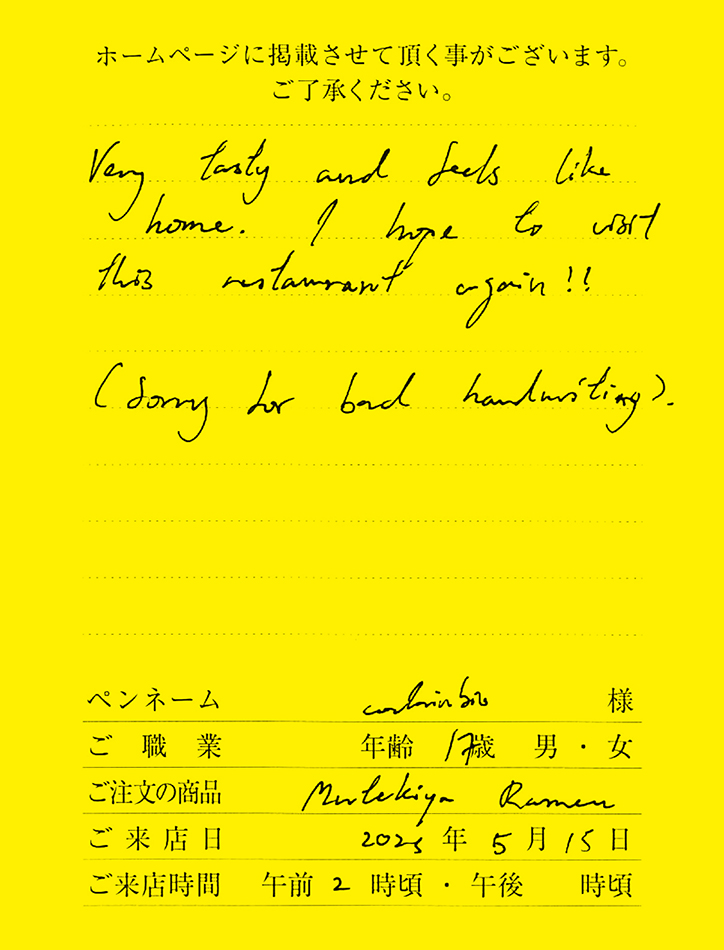 ホームページに掲載させて頂く事がございます。
ご了承ください。
Very tasty and feels like
home. I hope to visit
this restaurant again!!
(Sorry for bad handwriting).
ペンネーム 様
ご職業 年齢 17歳 男・女
ご注文の商品 Mutekiya Ramen
ご来店日 年 5月15日
ご来店時間 午前 2 時頃・午後 時頃